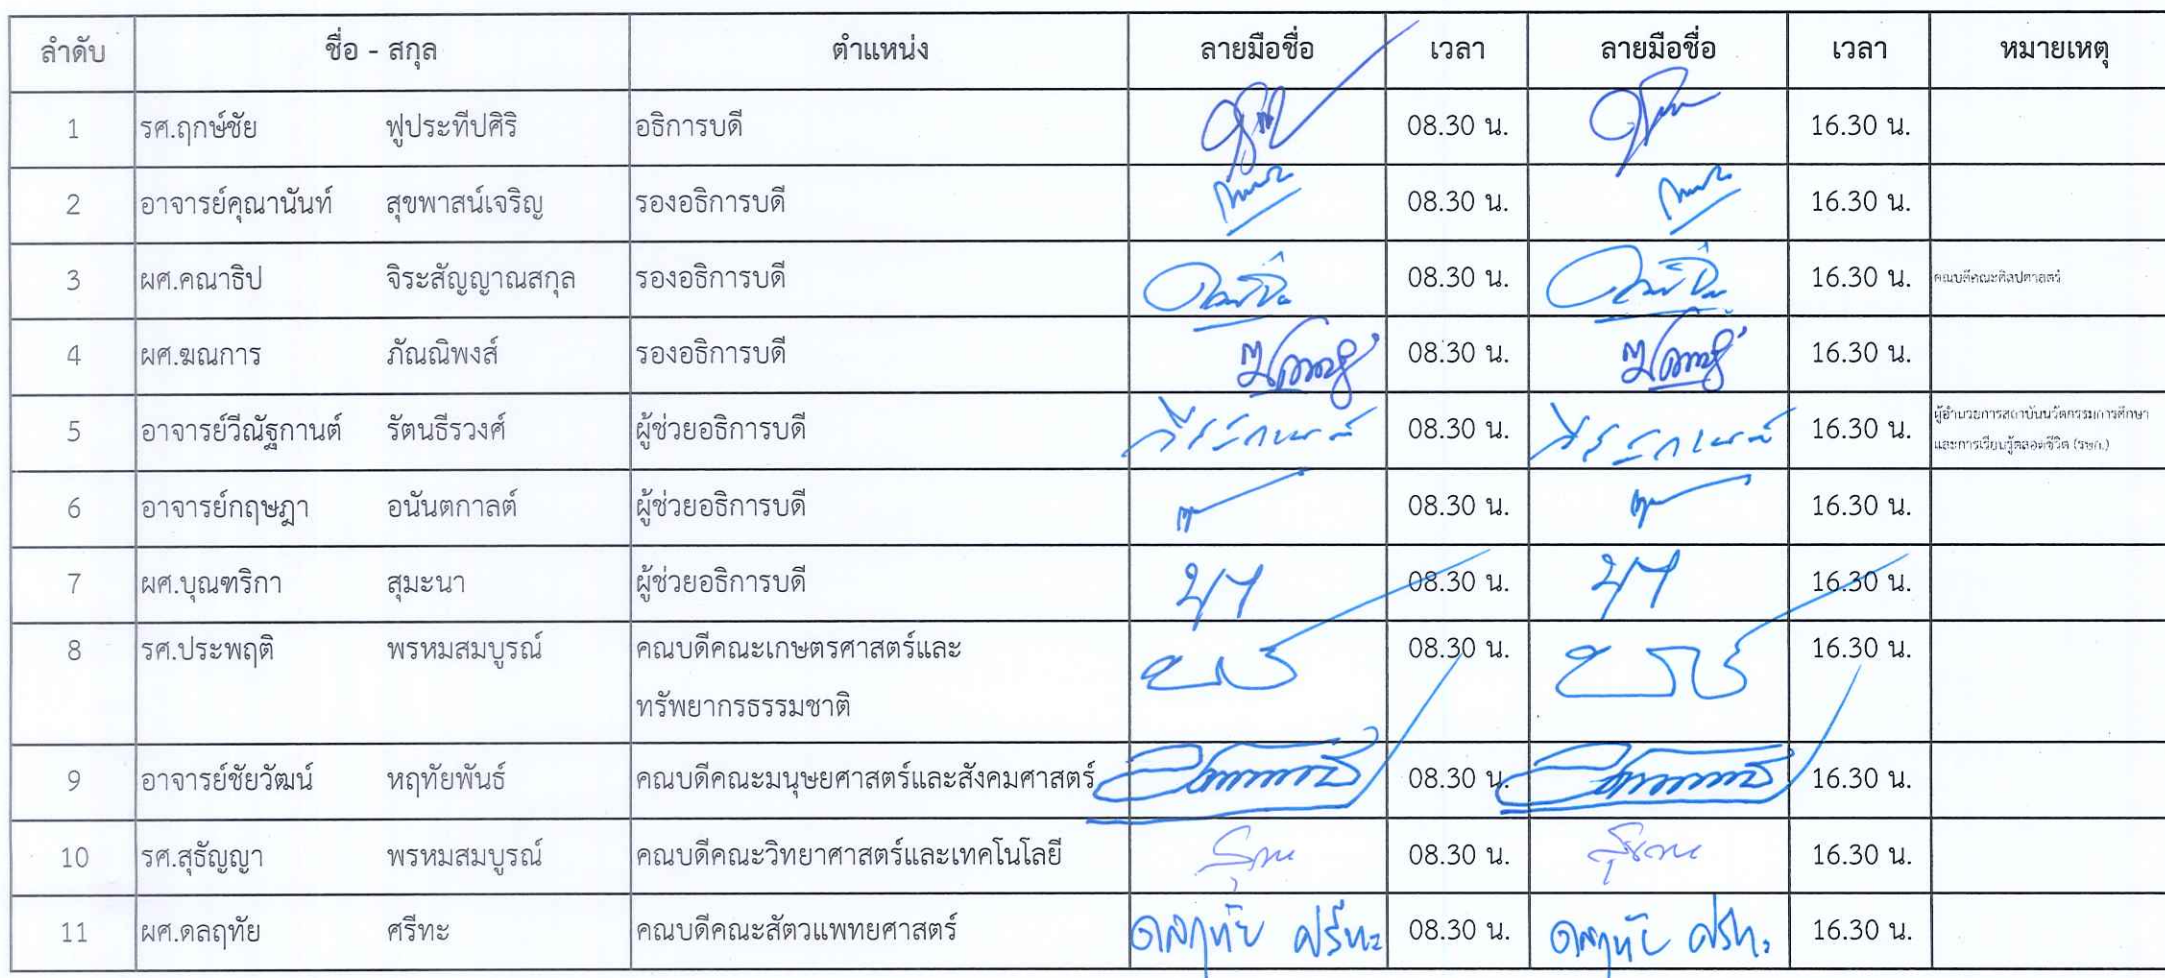 ลำดับ ชื่อ - สกุล ตำแหน่ง ลายมือชื่อ เวลา ลายมือชื่อ เวลา หมายเหตุ
1 รศ.ฤกษ์ชัย ฟูประทีปศิริ อธิการบดี 08.30 น. 16.30 น.
2 อาจารย์คุณานันท์ สุขพาสน์เจริญ รองอธิการบดี 08.30 น. 16.30 น.
3 ผศ.คณาธิป จิระสัญญาณสกุล รองอธิการบดี 08.30 น. 16.30 น. คณบดีคณะศิลปศาสตร์
4 ผศ.ฆณการ ภัณณิพงส์ รองอธิการบดี 08.30 น. 16.30 น.
5 อาจารย์วีณัฐกานต์ รัตนธีรวงศ์ ผู้ช่วยอธิการบดี 08.30 น. 16.30 น. ผู้อำนวยการสถาบันนวัตกรรมการศึกษา
และการเรียนรู้ตลอดชีวิต
6 อาจารย์กฤษฎา อนันตกาลต์ ผู้ช่วยอธิการบดี 08.30 น. 16.30 น.
7 ผศ.บุณฑริกา สุมะนา ผู้ช่วยอธิการบดี 08.30 น. 16.30 น.
8 รศ.ประพฤติ พรหมสมบูรณ์ คณบดีคณะเกษตรศาสตร์และ 08.30 น. 16.30 น.
ทรัพยากรธรรมชาติ
9 อาจารย์ชัยวัฒน์ หฤทัยพันธ์ คณบดีคณะมนุษยศาสตร์และสังคมศาสตร์ 08.30 น. 16.30 น.
10 รศ.สุธัญญา พรหมสมบูรณ์ คณบดีคณะวิทยาศาสตร์และเทคโนโลยี 08.30 น. 16.30 น.
11 ผศ.ดลฤทัย ศรีทะ คณบดีคณะสัตวแพทยศาสตร์ ดลฤทัย ศรีทะ 08.30 น. ดลฤทัย ศรีทะ 16.30 น.